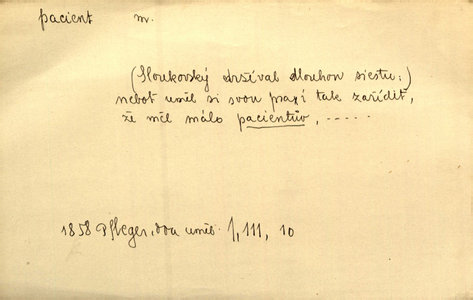 pacient m.
(Sloukovský držíval dlouhou siestu:)
neboť uměl si svou praxí tak zařídit,
že měl málo pacientův, -----
1858 Pfleger, dva uměl. I, 111, 10